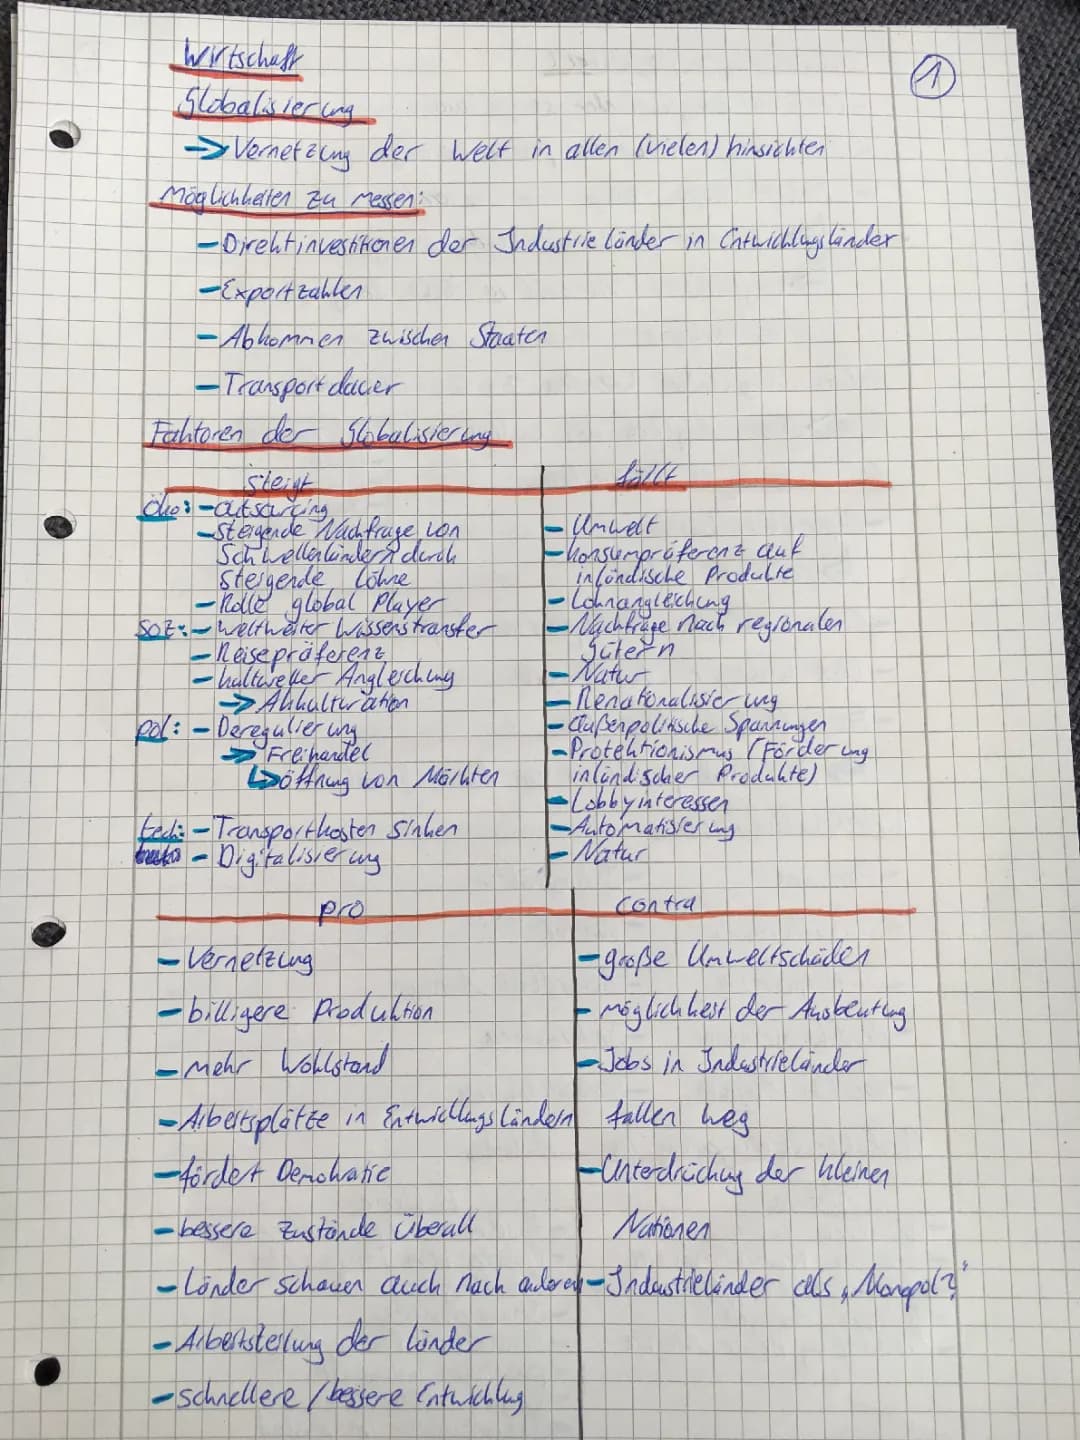 Wirtschaft
1
Globalisierung
→ Vernetzung der Welt in allen (vielen) hinsichten
Möglichkeiten zu messen:
- Direktinvestitionen der Industrieländer in Entwicklungsländer
- Exportzahlen
- Abkommen zwischen Staaten
- Transportdauer
Faktoren der Globalisierung
steigt
öko: - outsourcing
- steigende Nachfrage von
Schwellenländern durch
steigende Löhne
- Rolle global Player
soz: - weltweiter Wissenstransfer
- Reisepräferenz
- kultureller Angleichung
→ Akkulturation
pol: - Deregulierung
→ Freihandel
↳ öffnung von Märkten
tech: - Transportkosten sinken
- Digitalisierung
fällt
- Umwelt
- Konsumpräferenz auf
inländische Produkte
- Lohnangleichung
- Nachfrage nach regionalen
Gütern
- Natur
- Renationalisierung
- außenpolitische Spannungen
- Protektionismus (Förderung
inländischer Produkte)
- Lobbyinteressen
- Automatisierung
- Natur
pro
- Vernetzung
- billigere Produktion
- mehr Wohlstand
- Arbeitsplätze in Entwicklungsländern
- fördert Demokratie
- bessere Zustände überall
- Länder schauen auch nach anderen
- Arbeitsteilung der Länder
- schnellere / bessere Entwicklug
contra
- große Umweltschäden
- möglichkeit der Ausbeutung
- Jobs in Industrieländer
fallen weg
- Unterdrückung der kleinen
Nationen
- Industrieländer als „Monopol?"